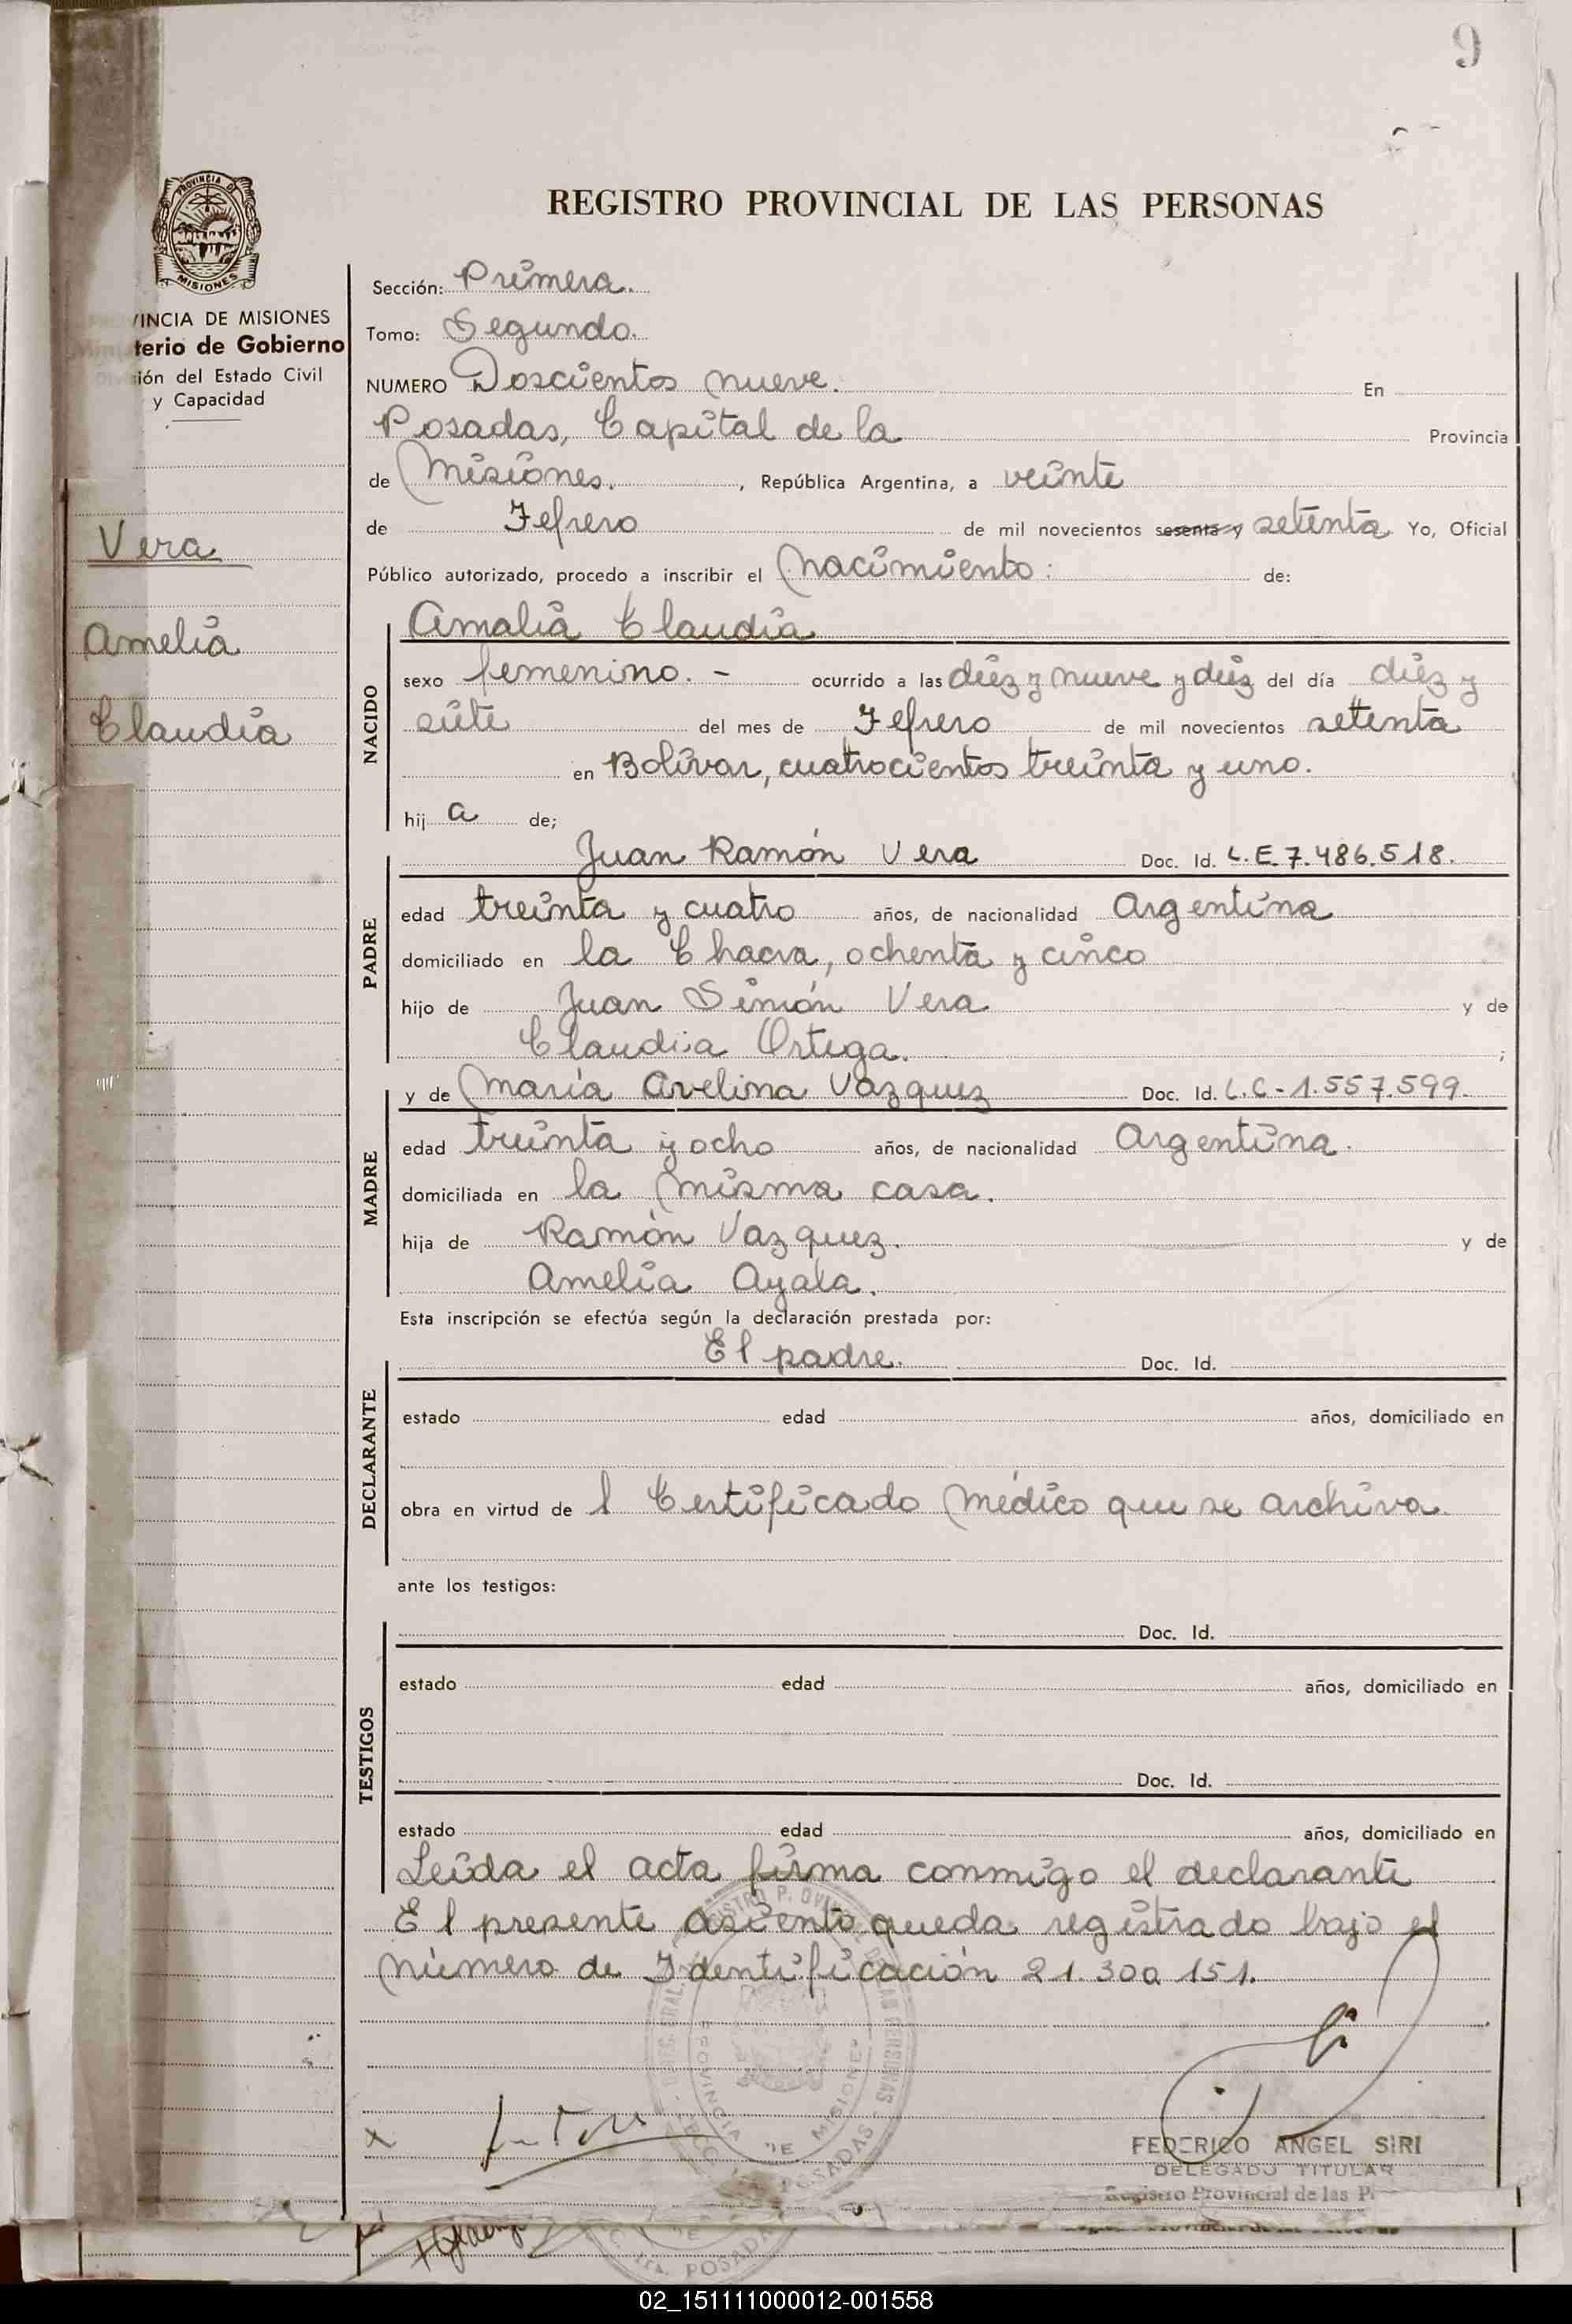 9
PROVINCIA DE
MISIONES
REGISTRO PROVINCIAL DE LAS PERSONAS
VINCIA DE MISIONES
terio de Gobierno
ión del Estado Civil
y Capacidad
Vera
Amelia
Claudia
Sección: Primera.
Tomo: Segundo.
NUMERO Doscientos nueve. En
Posadas, Capital de la Provincia
de Misiones. , República Argentina, a veinte
de Febrero de mil novecientos sesenta y setenta Yo, Oficial
Público autorizado, procedo a inscribir el Nacimiento: de:
NACIDO
Amalia Claudia
sexo femenino. - ocurrido a las diez y nueve y diez del día diez y
siete del mes de Febrero de mil novecientos setenta
en Bolívar, cuatrocientos treinta y uno.
hij a de;
PADRE
Juan Ramón Vera Doc. Id. L.E. 7.486.518.
edad treinta y cuatro años, de nacionalidad Argentina
domiciliado en la Chacra, ochenta y cinco
hijo de Juan Simón Vera y de
Claudia Ortega. ;
MADRE
y de María Avelina Vazquez Doc. Id. L.C-1.557.599.
edad treinta y ocho años, de nacionalidad Argentina.
domiciliada en la misma casa.
hija de Ramón Vazquez. y de
Amelia Ayala.
Esta inscripción se efectúa según la declaración prestada por:
DECLARANTE
El padre. Doc. Id.
estado edad años, domiciliado en
obra en virtud de l Certificado Médico que se archiva.
ante los testigos:
TESTIGOS
Doc. Id.
estado edad años, domiciliado en
Doc. Id.
estado edad años, domiciliado en
Leída el acta firma conmigo el declarante
El presente asiento queda registrado bajo el
número de Identificación 21.300.151.
PROVINCIA DE MISIONES
POSADAS
x
FEDERICO ANGEL SIRI
DELEGADO TITULAR
Registro Provincial de las P
POSADA
02_151111000012-001558